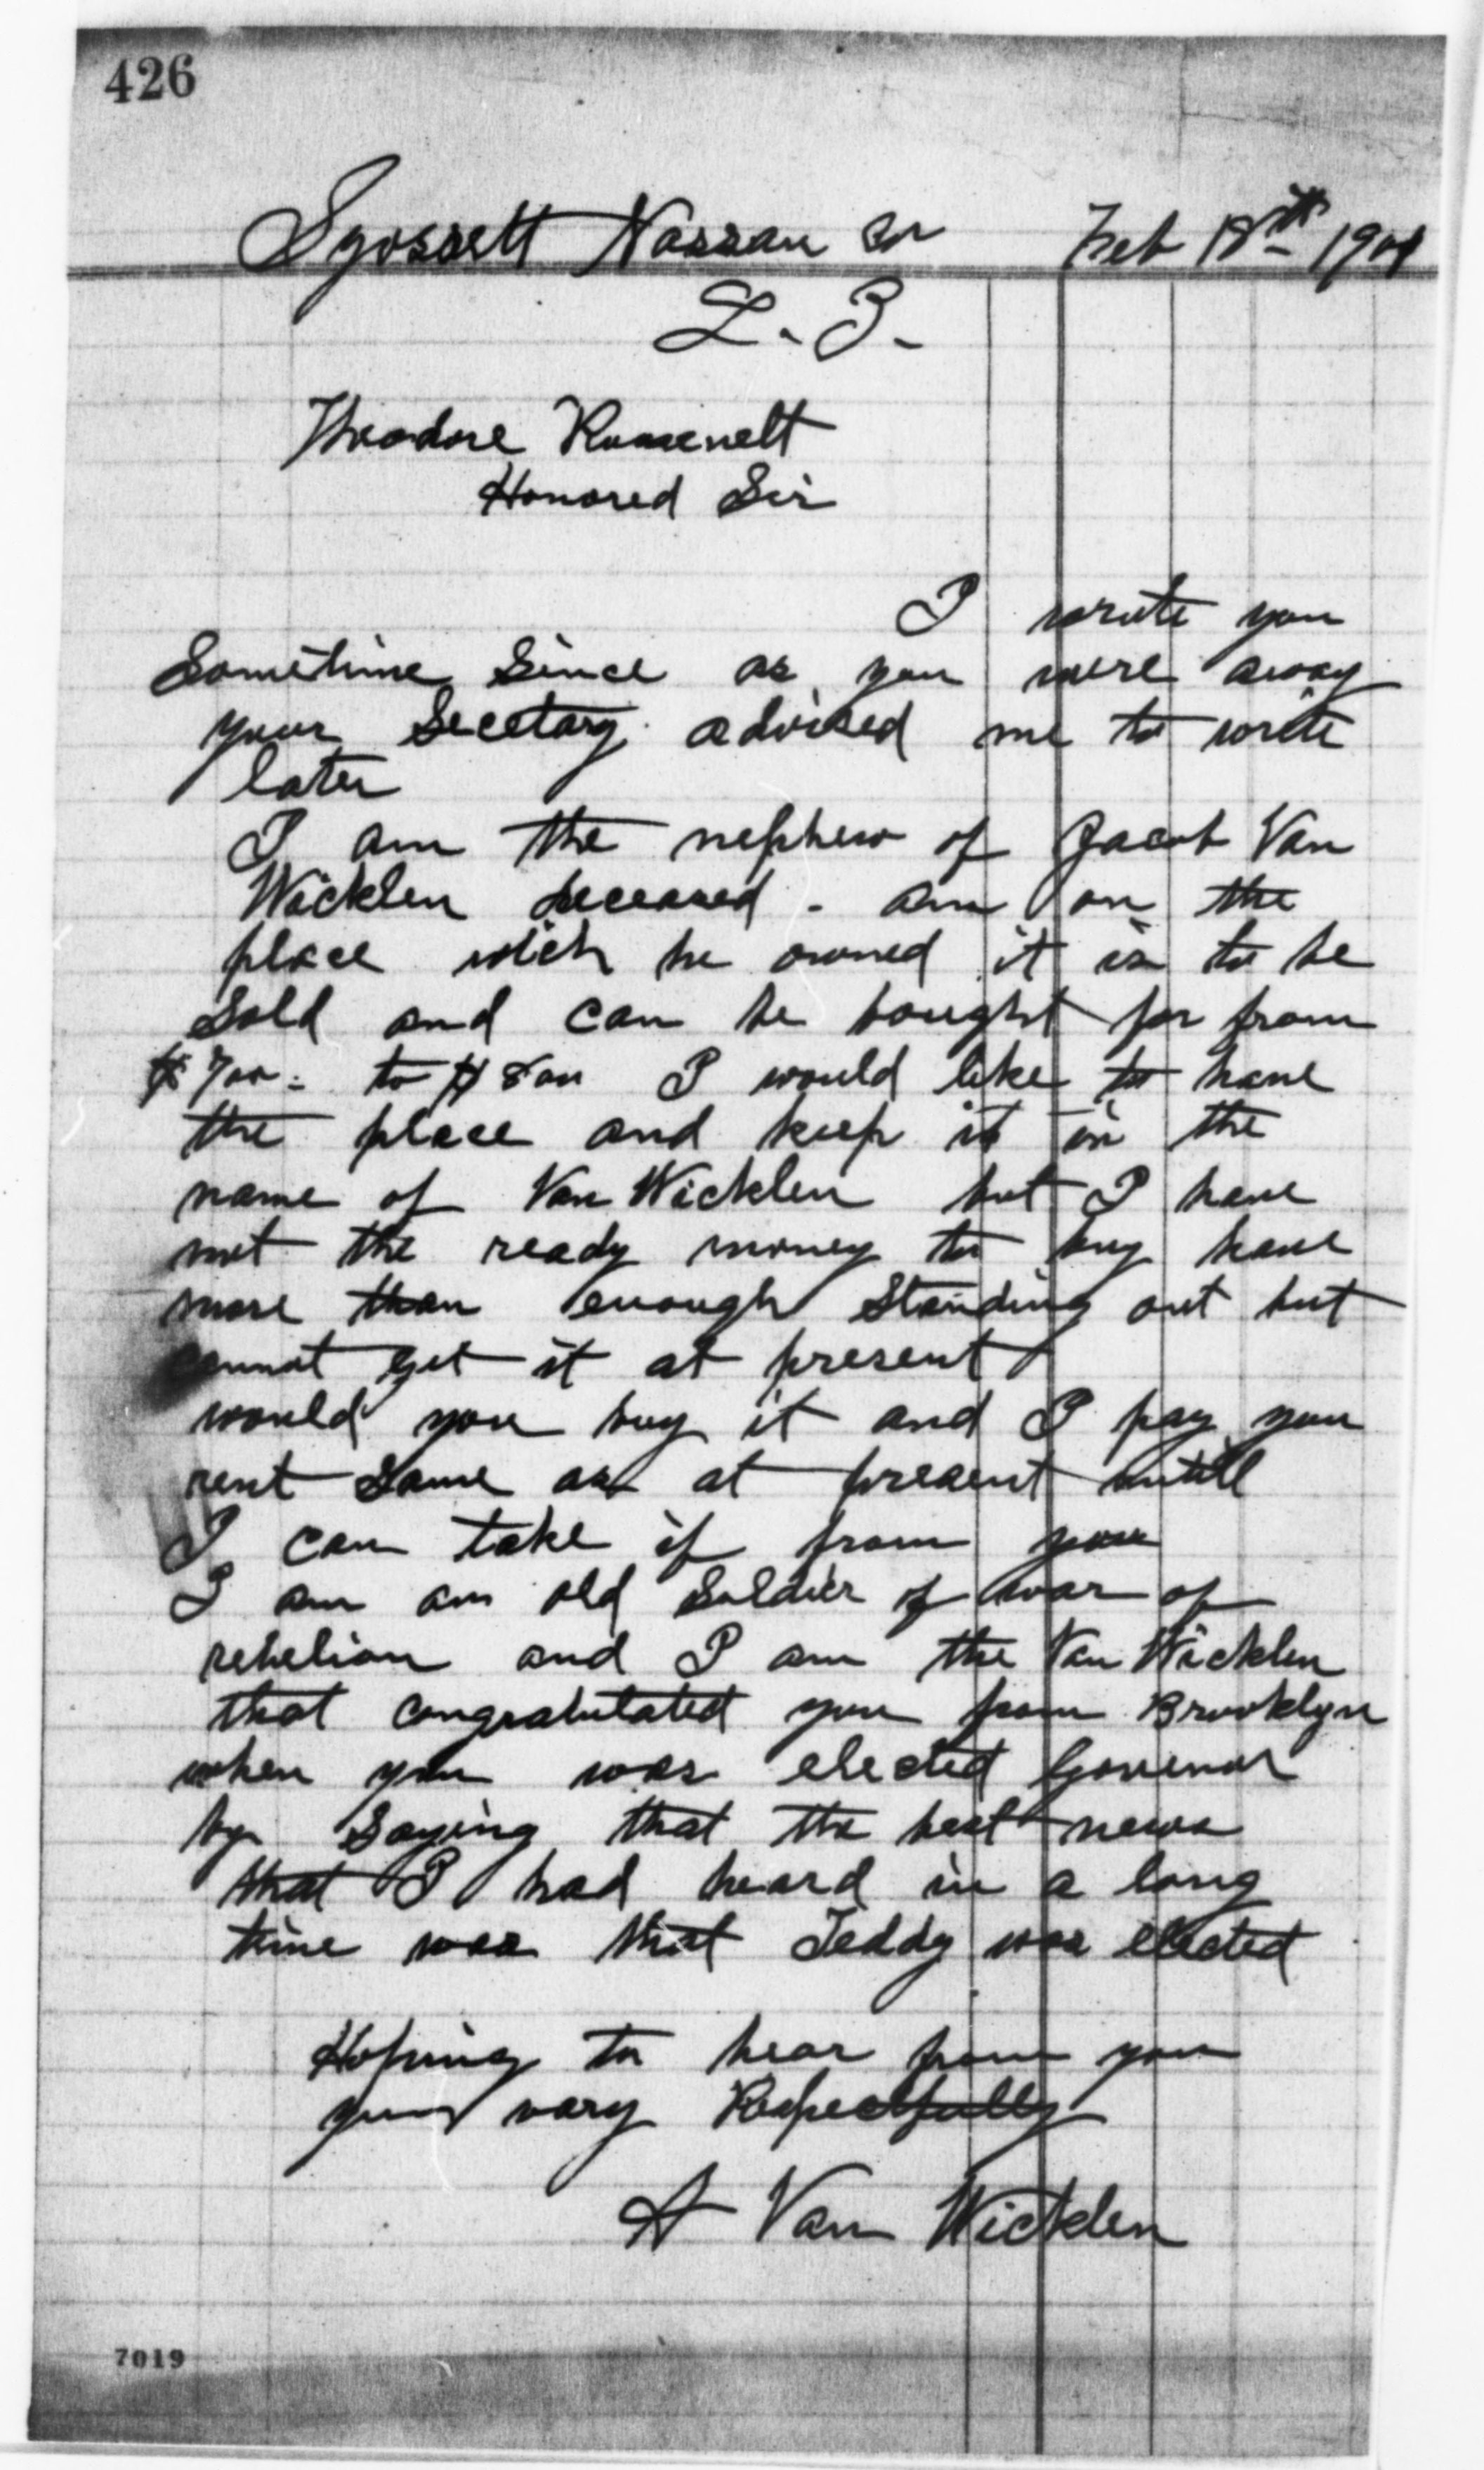 426
Syossett Nassau Co Feb 18th 1901
L. I.
Theodore Roosevelt
Honored Sir
I wrote you
Sometime Since as you were away
your Secetary advised me to write
later
I am the nephew of Jacob Van
Wicklen deceased - am on the
place wich he owned it is to be
Sold and can be bought for from
$700- to $800 I would like to have
the place and keep it in the
name of Van Wicklen but I have
not the ready money to buy have
more than enough Standing out but
cannot get it at present
would you buy it and I pay you
rent Same as at present untill
I can take if from you
I am an old Soldier of war of
rebelion and I am the Van Wicklen
that congratulated you from Brooklyn
when you was elected Govenor
by Saying that the best news
that I had heard in a long
time was that Teddy was elected
Hoping to hear from you
yours vary Respectfully
A Van Wicklen
7019